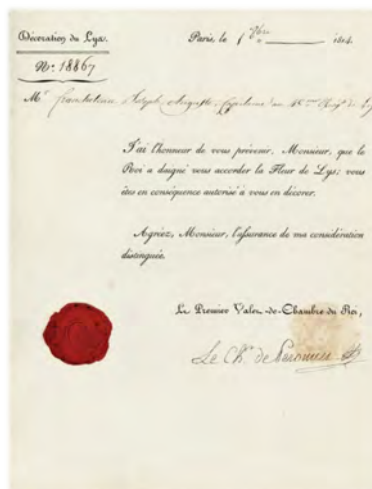 Décoration du Lys.
Paris, le 1 7bre 1814.
No. 18867
Mr. Adolphe Auguste, Capitaine au 45eme Régt de
J'ai l'honneur de vous prévenir, Monsieur, que le
Roi a daigné vous accorder la Fleur de Lys; vous
êtes en conséquence autorisé à vous en décorer.
Agréez, Monsieur, l'assurance de ma considération
distinguée.
Le Premier Valet-de-Chambre du Roi,
Le Chr. de